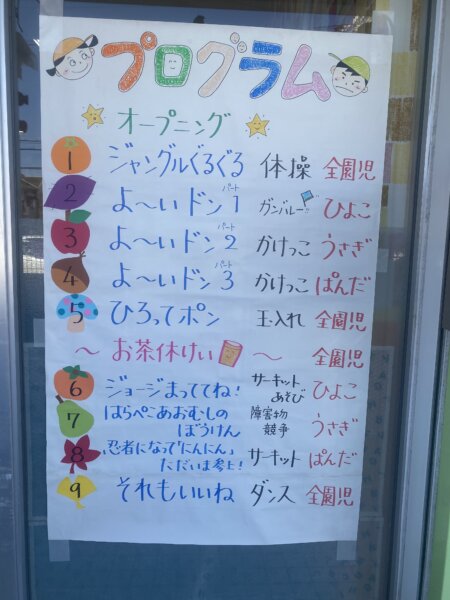 プログラム
オープニング
1 ジャングルぐるぐる 体操 全園児
2 よ～いドン パート1 ガンバレー!! ひよこ
3 よ～いドン パート2 かけっこ うさぎ
4 よ～いドン パート3 かけっこ ぱんだ
5 ひろってポン 玉入れ 全園児
～お茶休けい～ 全園児
6 ジョージまっててね! サーキットあそび ひよこ
7 はらぺこあおむしの 障害物 うさぎ
ぼうけん 競争
8 忍者になって「にんにん」 サーキット ぱんだ
ただいま参上!
9 それもいいね ダンス 全園児